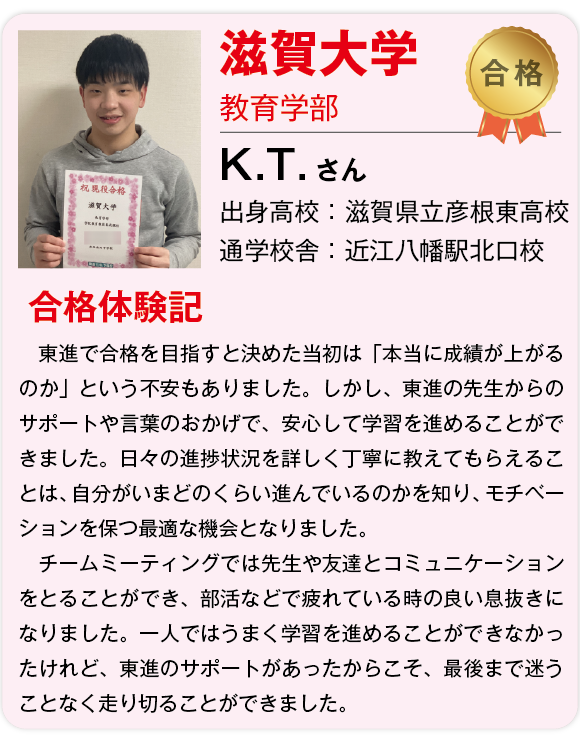 滋賀大学
合格
教育学部
K.T.さん
出身高校：滋賀県立彦根東高校
通学校舎：近江八幡駅北口校
祝 現役合格
滋賀大学
教育学部
合格体験記
　東進で合格を目指すと決めた当初は「本当に成績が上がる
のか」という不安もありました。しかし、東進の先生からの
サポートや言葉のおかげで、安心して学習を進めることがで
きました。日々の進捗状況を詳しく丁寧に教えてもらえるこ
とは、自分がいまどのくらい進んでいるのかを知り、モチベー
ションを保つ最適な機会となりました。
　チームミーティングでは先生や友達とコミュニケーション
をとることができ、部活などで疲れている時の良い息抜きに
なりました。一人ではうまく学習を進めることができなかっ
たけれど、東進のサポートがあったからこそ、最後まで迷う
ことなく走り切ることができました。